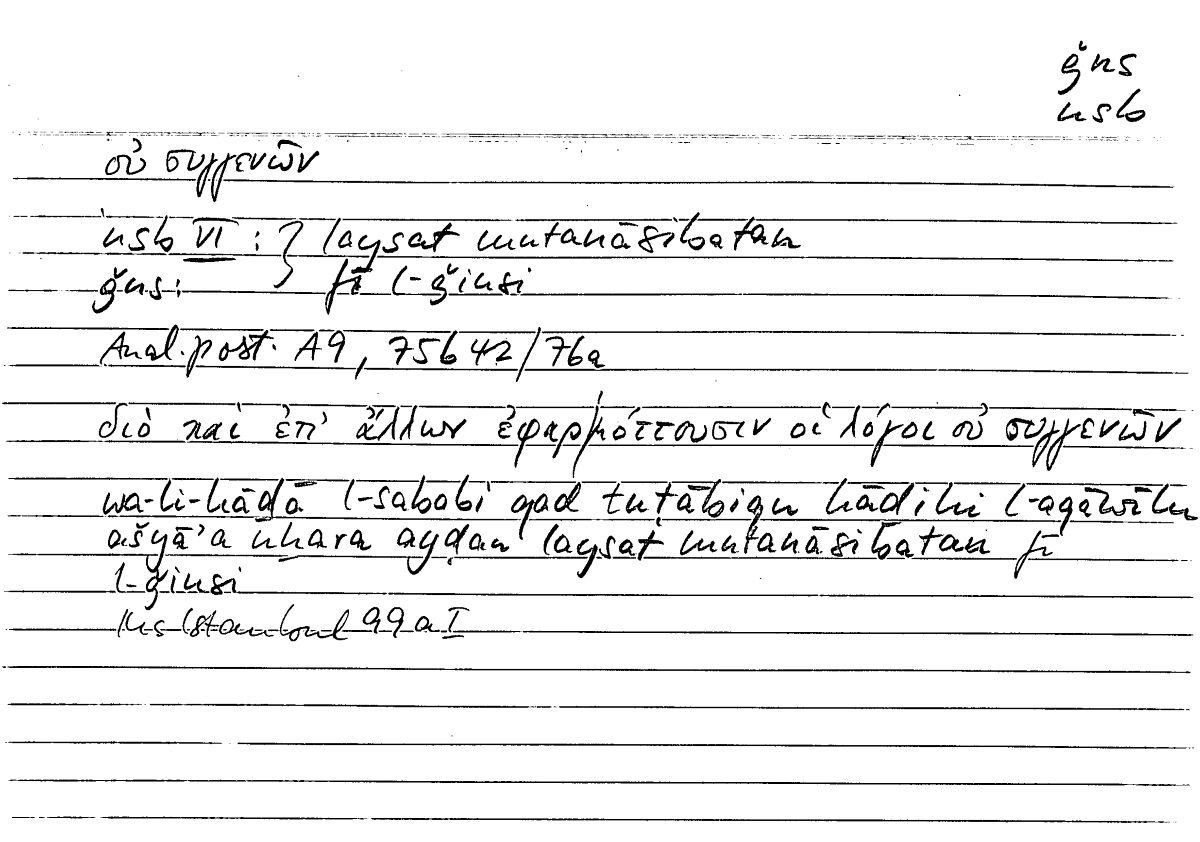 ǧns
nsb
οὐ συγγενῶν
nsb VI : } laysat mutanāsibatan
ǧns : fī l-ǧinsi
Anal. post. A9, 75b42/76a
διὸ καὶ ἐπ' ἄλλων ἐφαρμόττουσιν οἱ λόγοι οὐ συγγενῶν
wa-li-hāḏā l-sababi qad tuṭābiqu hāḏihi l-aqāwīlu
ašyāʾa uḫara ayḍan laysat mutanāsibatan fī
l-ǧinsi
Ms Istanbul 99a I